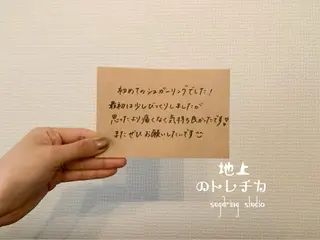 初めてのシュガーリングでした！
最初は少しびっくりしましたが
思ったより痛くなく気持ち良かったです♥
またぜひお願いしたいです☺
地上
のトレチカ
sugaring studio